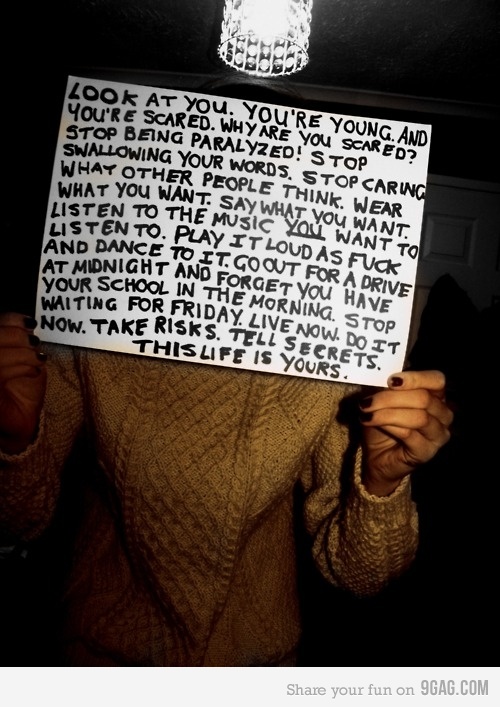 LOOK AT YOU. YOU'RE YOUNG. AND
YOU'RE SCARED. WHY ARE YOU SCARED?
STOP BEING PARALYZED! STOP
SWALLOWING YOUR WORDS. STOP CARING
WHAT OTHER PEOPLE THINK. WEAR
WHAT YOU WANT. SAY WHAT YOU WANT.
LISTEN TO THE MUSIC YOU WANT TO
LISTEN TO. PLAY IT LOUD AS FUCK
AND DANCE TO IT. GO OUT FOR A DRIVE
AT MIDNIGHT AND FORGET YOU HAVE
YOUR SCHOOL IN THE MORNING. STOP
WAITING FOR FRIDAY. LIVE NOW. DO IT
NOW. TAKE RISKS. TELL SECRETS.
THIS LIFE IS YOURS.
Share your fun on 9GAG.COM